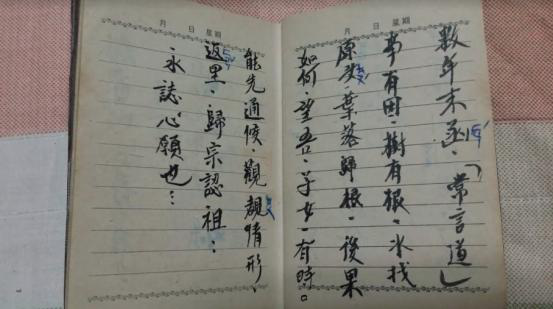 月 日 星期
數年末函、「常言道」
事有因、樹有根、水找
原头、葉落歸根、後果
如何、望吾、子女、有時。
月 日 星期
能先通候、觀覌情形、
返里、歸宗認祖：
永誌心願也…